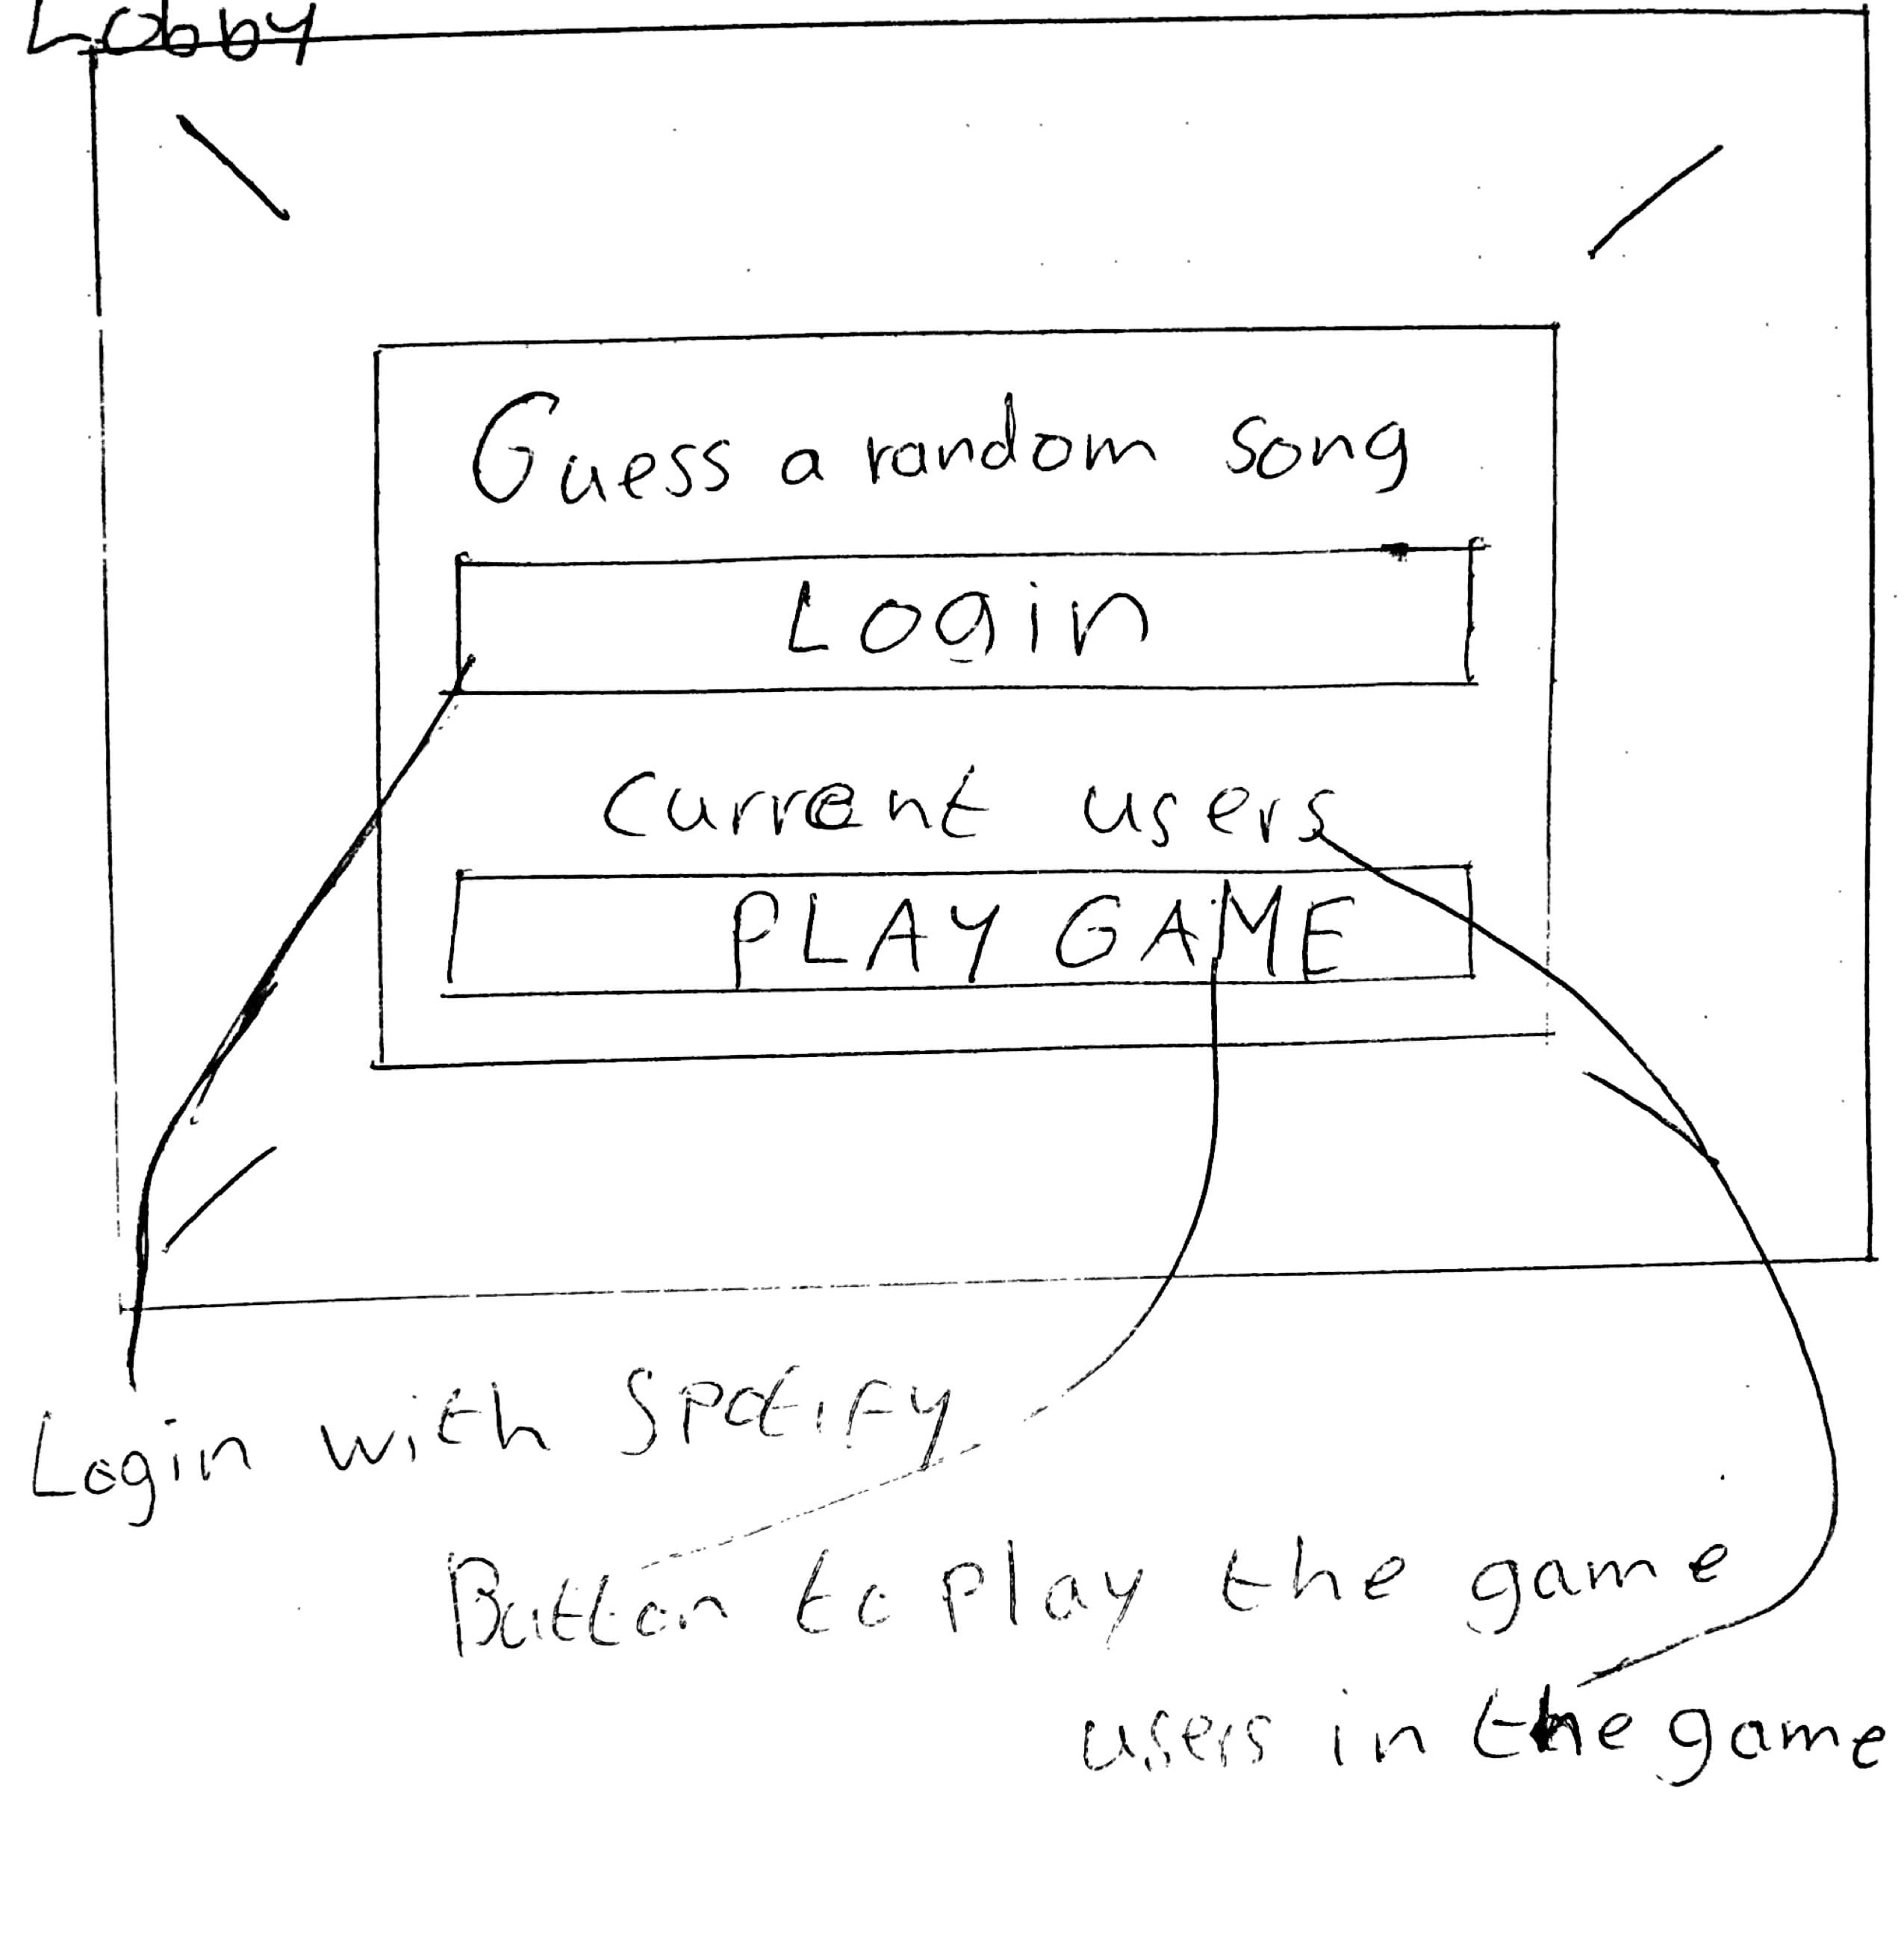 Lobby
Guess a random song
Login
Current users
PLAY GAME
Login with Spotify
Button to play the game
users in the game